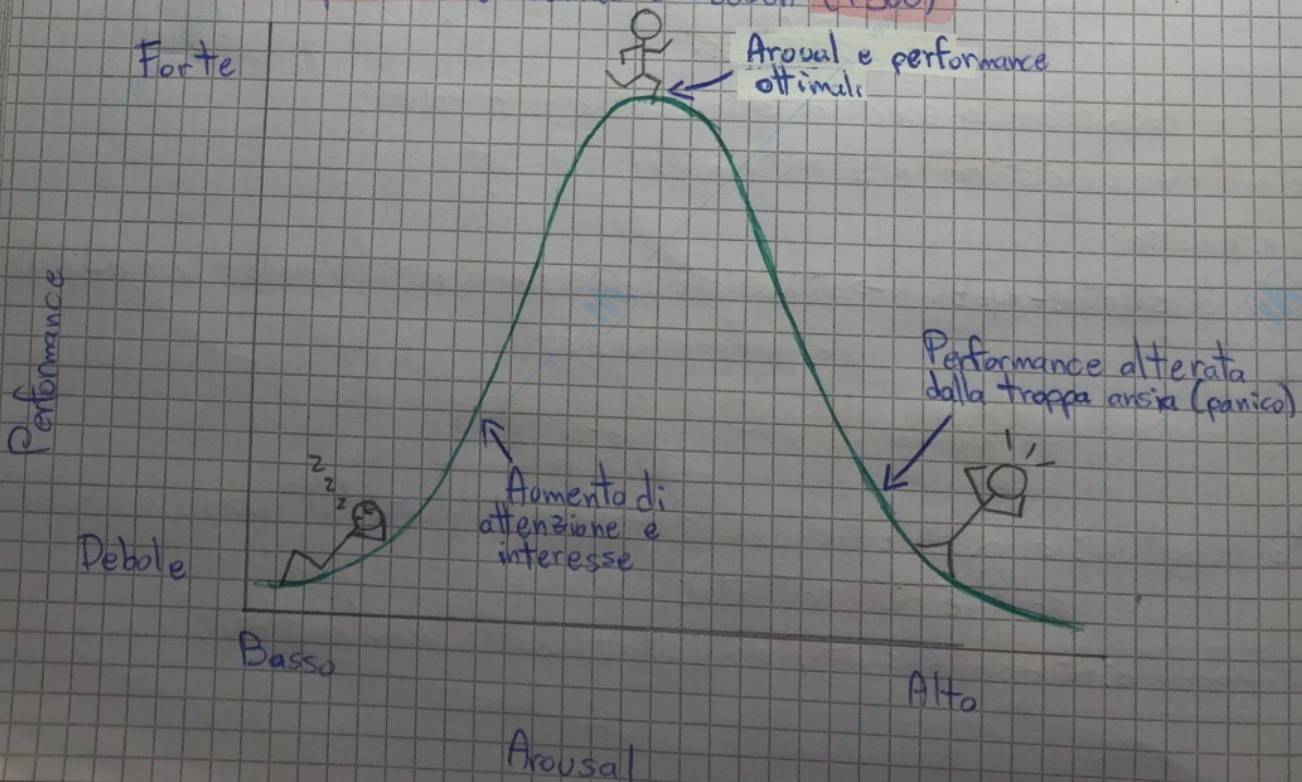 (1908)
Forte
Arousal e performance
ottimali
Performance
Performance alterata
dalla troppa ansia (panico)
z
z
z
Aumento di
attenzione e
interesse
Debole
Basso
Alto
Arousal